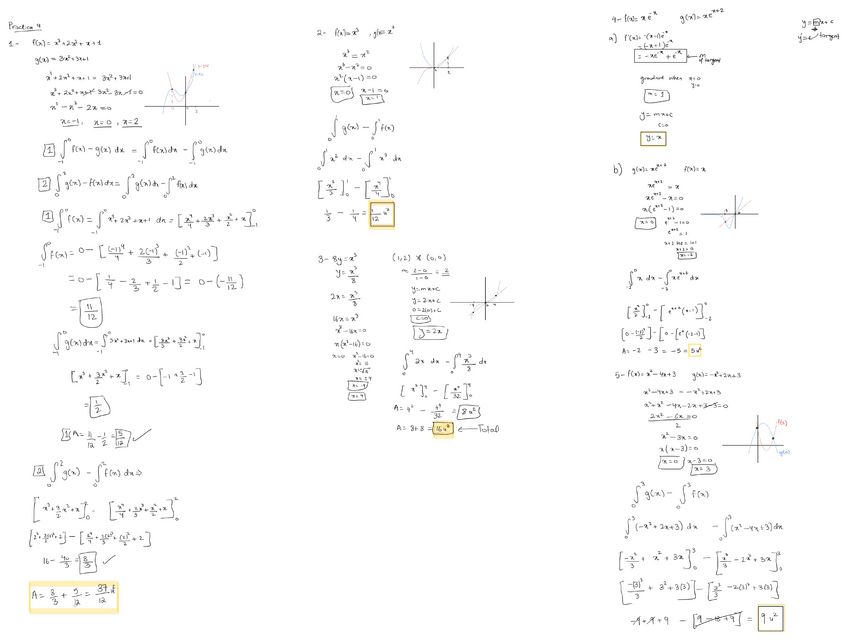 Practica 4
1.- f(x) = x³+2x²+x+1
g(x) = 3x²+3x+1
x³+2x²+x+1 = 3x²+3x+1
x³+2x²+x+1-3x²-3x-1=0
x³-x²-2x=0
x=-1, x=0, x=2
1 ∫₋₁⁰ f(x)-g(x) dx = ∫₋₁⁰ f(x)dx - ∫₋₁⁰ g(x)dx
2 ∫₀² g(x)-f(x)dx = ∫₀² g(x)dx - ∫₀² f(x)dx
1 ∫₋₁⁰ f(x) = ∫₋₁⁰ x³+2x²+x+1 dx = [x⁴/4 + 2x³/3 + x²/2 + x]₋₁⁰
∫₋₁⁰ f(x) = 0 - [(-1)⁴/4 + 2(-1)³/3 + (-1)²/2 + (-1)]
= 0 - [1/4 - 2/3 + 1/2 - 1] = 0 - (-11/12)
= 11/12
[x³ + 3x²/2 + x]₋₁⁰ = 0 - [-1 + 3/2 - 1]
= 1/2
1 A = 11/12 - 1/2 = 5/12 ✓
2 ∫₀² g(x) - ∫₀² f(x) dx ⇒
[x³ + 3/2 x² + x]₀² - [x⁴/4 + 2x³/3 + x²/2 + x]₀²
16 - 40/3 = 8/3 ✓
A = 8/3 + 5/12 = 37/12 u²
2- f(x)=x³, g(x)=x²
x³ = x²
x³-x²=0
x²(x-1)=0
x=0 x-1=0
x=1
∫₀¹ g(x) - ∫₀¹ f(x)
∫₀¹ x² dx - ∫₀¹ x³ dx
[x³/3]₀¹ - [x⁴/4]₀¹
1/3 - 1/4 = 1/12 u²
3- 8y=x³ (1,2) y (0,0)
y = x³/8 m = 2-0/1-0 = 2
2x = x³/8 y=mx+c
y=2x+c
16x=x³ 0=2(0)+c
x³-16x=0 c=0
x(x²-16)=0 y=2x
x=0 x²-16=0
x²=16
x=√16
x=±4
x=-4
x=4
∫₀⁴ 2x dx - ∫₀⁴ x³/8 dx
[x²]₀⁴ - [x⁴/32]₀⁴
A = 4² - 4⁴/32 = 8u²
A = 8+8 = 16u² ← Total
4- f(x)=xe⁻ˣ g(x)=xeˣ⁺² y=mx+c
a) f'(x) = -(x-1)e⁻ˣ
= (-x+1)e⁻ˣ
= -xe⁻ˣ + e⁻ˣ ← m of tangent
gradient when x=0
m=1
y=mx+c
c=0
y=x
b) g(x)=xeˣ⁺² f(x)=x
xeˣ⁺² = x
xeˣ⁺²-x=0
x(eˣ⁺²-1)=0
x=0 eˣ⁺²-1=0
eˣ⁺²=1
x+2=0
x=-2
∫₋₂⁰ x dx - ∫₋₂⁰ xeˣ⁺² dx
[x²/2]₋₂⁰ - [eˣ⁺²(x-1)]₋₂⁰
A = -2 -3 = -5 = 5u²
5- f(x)=x²-4x+3 g(x)=-x²+2x+3
x²-4x+3 = -x²+2x+3
x²+x²-4x-2x+3-3=0
2x²-6x=0
2
x²-3x=0
x(x-3)=0
x=0 x-3=0
x=3
f(x)
g(x)
∫₀³ g(x) - ∫₀³ f(x)
∫₀³ (-x²+2x+3) dx - ∫₀³ (x²-4x+3)dx
[-x³/3 + x² + 3x]₀³ - [x³/3 - 2x² + 3x]₀³
[-(3)³/3 + 3² + 3(3)] - [3³/3 - 2(3)² + 3(3)]
-9+9+9 - [9-18+9] = 9u²